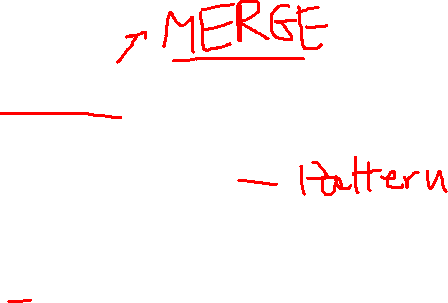 MERGE
Pattern